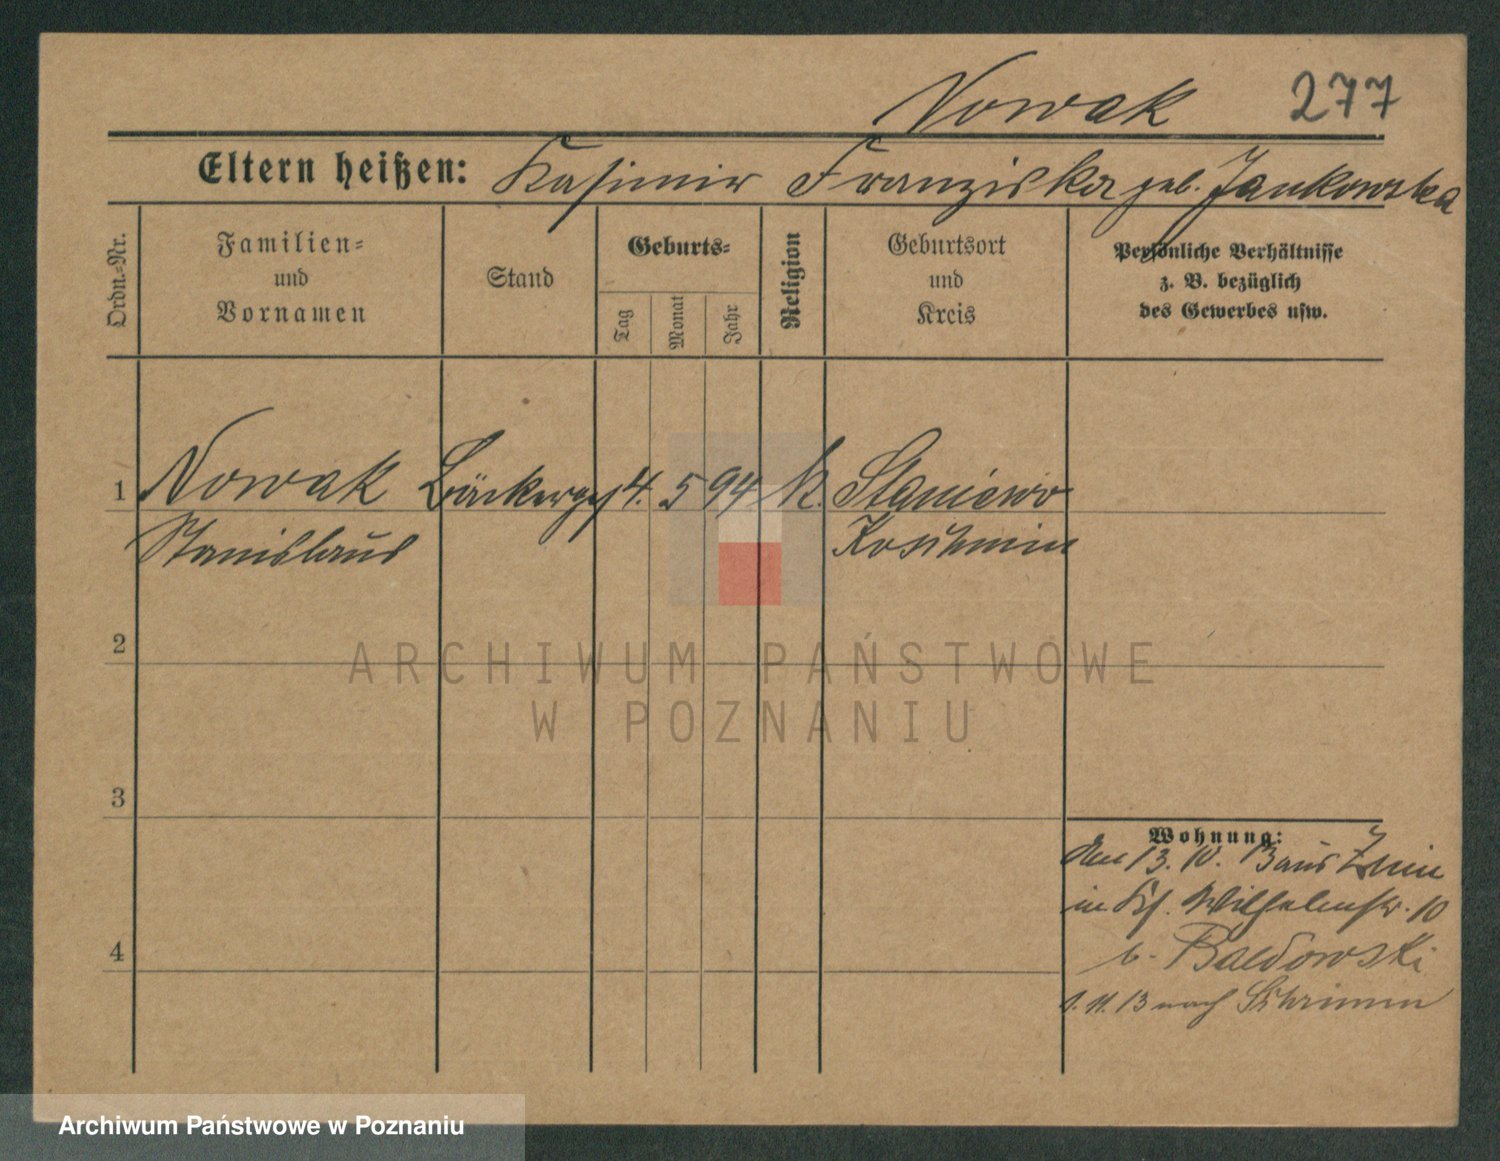 Nowak 277
Eltern heißen: Kasimir Franziska geb. Jankowska
Ordn.=Nr.
Familien=
und
Vornamen
Stand
Geburts=
Tag
Monat
Jahr
Religion
Geburtsort
und
Kreis
Persönliche Verhältnisse
z. B. bezüglich
des Gewerbes usw.
1 Nowak Bäckerges 4. 5 94 k. Staniewo
Stanislaus Koschmin
2
3
4
Wohnung:
den 13. 10. 13 aus Znin
in Wilhelmstr. 10
b. Baldowski
1. 11. 13 nach Schrimm
ARCHIWUM PAŃSTWOWE
W POZNANIU
Archiwum Państwowe w Poznaniu